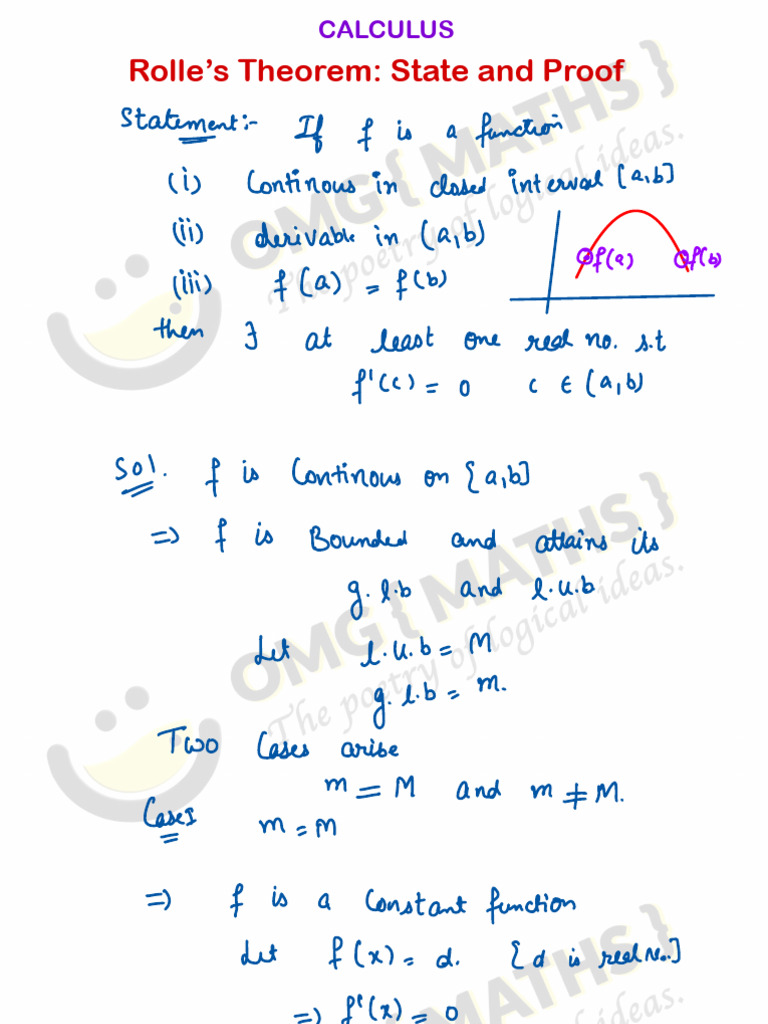 CALCULUS
Rolle's Theorem: State and Proof
Statement:- If f is a function
(i) Continous in closed interval [a,b]
(ii) derivable in (a,b)
(iii) f(a) = f(b)
f(a) f(b)
then ∃ at least one real no. s.t
f'(c) = 0 c ∈ (a,b)
Sol. f is Continous on [a,b]
⇒ f is Bounded and attains its
g.l.b and l.u.b
Let l.u.b = M
g.l.b = m.
Two Cases arise
m = M and m ≠ M.
CaseI m = M
⇒ f is a Constant function
Let f(x) = d. [d is real No.]
⇒ f'(x) = 0
OMG{MATHS}
The poetry of logical ideas.
OMG{MATHS}
The poetry of logical ideas.